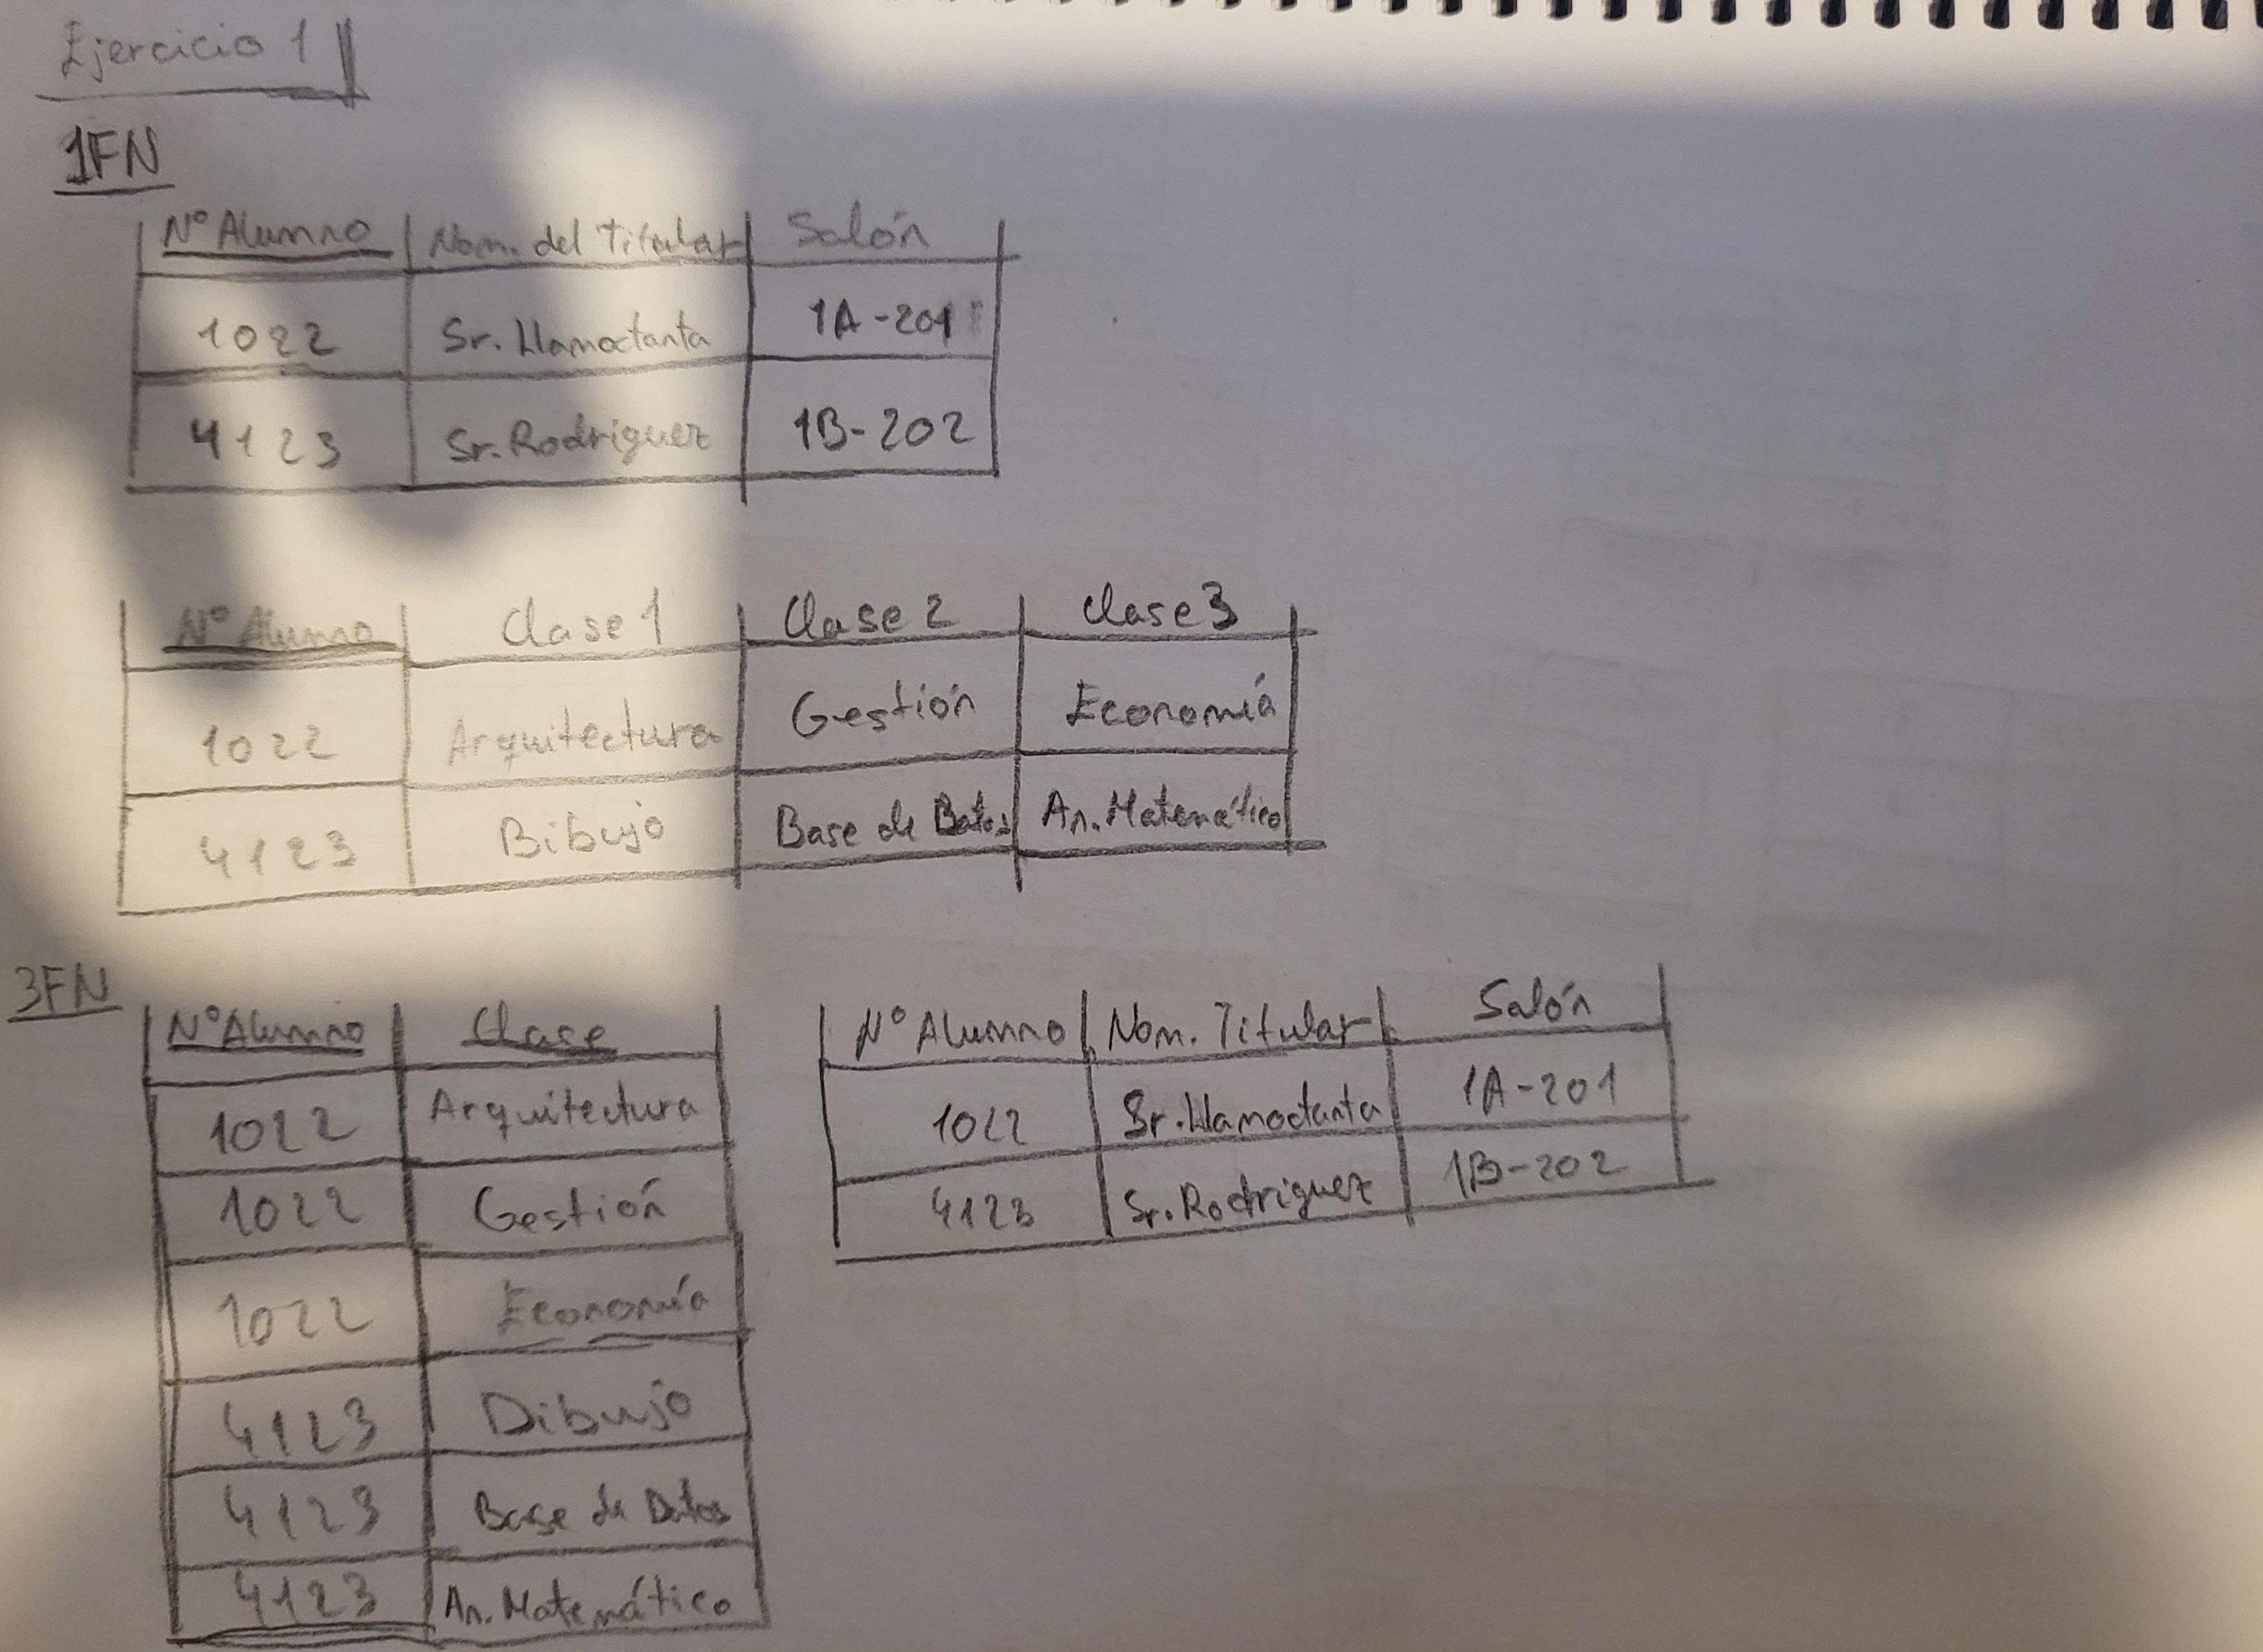 Ejercicio 1
1FN
Nº Alumno Nom. del Titular Salón
1022 Sr. Llamoctanta 1A-201
4123 Sr. Rodriguez 1B-202
Nº Alumno Clase 1 Clase 2 Clase 3
1022 Arquitectura Gestión Economía
4123 Bibujo Base de Batos An. Matemático
3FN
Nº Alumno Clase
1022 Arquitectura
1022 Gestión
1022 Economía
4123 Dibujo
4123 Base de Datos
4123 An. Matemático
Nº Alumno Nom. Titular Salón
1022 Sr. Llamoctanta 1A-201
4123 Sr. Rodriguez 1B-202